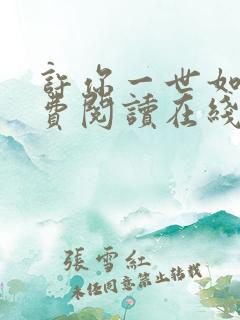 許你一世如
費閱讀在綫
張雪紅
未经同意禁止转载